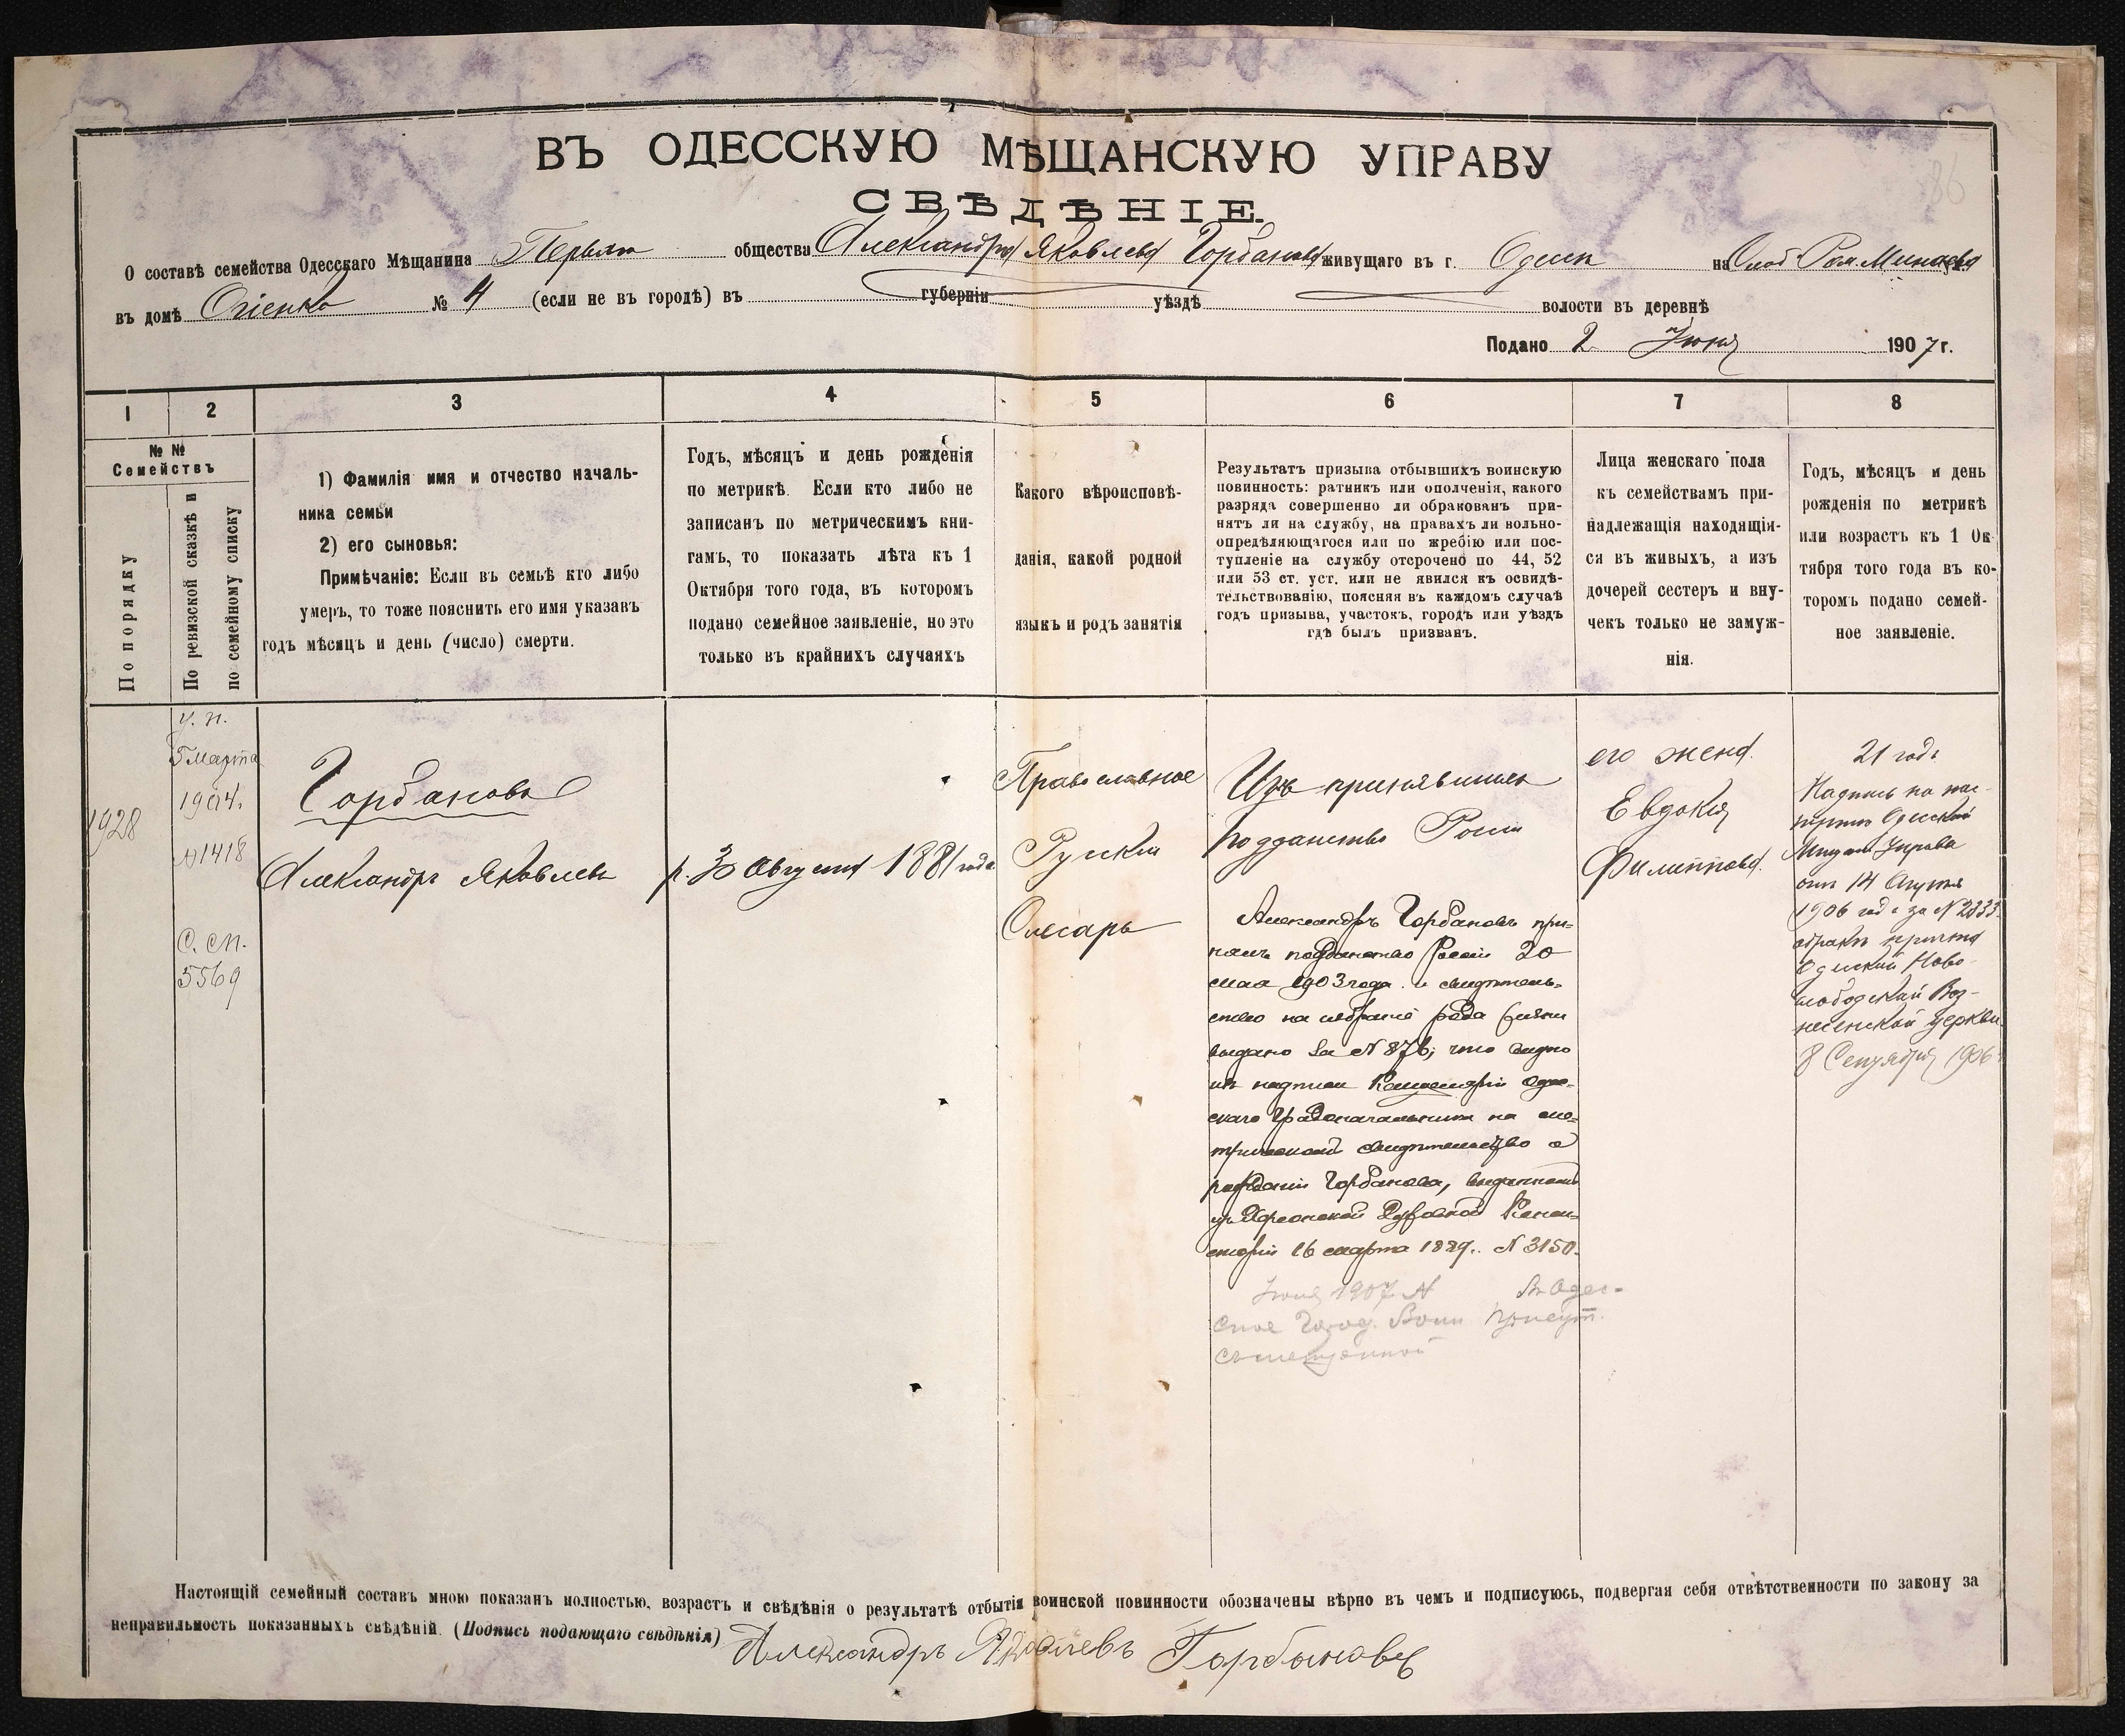 86
ВЪ ОДЕССКУЮ МѢЩАНСКУЮ УПРАВУ
СВѢДѢНІЕ.
О составѣ семейства Одесскаго Мѣщанина Перваго общества Александра Яковлева Горбанова живущаго въ г. Одессѣ на Слоб. Ром.
въ домѣ Огіенко № 4 (если не въ городѣ) въ губерніи уѣздѣ волости въ деревнѣ
Подано 2 Іюня 1907 г.
1 2 3 4 5 6 7 8
№ №
Семействъ
По порядку
По ревизской сказкѣ и
по семейному списку
1) Фамилія имя и отчество началь-
ника семьи
2) его сыновья:
Примѣчаніе: Если въ семьѣ кто либо
умеръ, то тоже пояснить его имя указавъ
годъ мѣсяцъ и день (число) смерти.
Годъ, мѣсяцъ и день рожденія
по метрикѣ. Если кто либо не
записанъ по метрическимъ кни-
гамъ, то показать лѣта къ 1
Октября того года, въ которомъ
подано семейное заявленіе, но это
только въ крайнихъ случаяхъ
Какого вѣроисповѣ-
данія, какой родной
языкъ и родъ занятія
Результатъ призыва отбывшихъ воинскую
повинность: ратникъ или ополченія, какого
разряда совершенно ли обракованъ при-
нятъ ли на службу, на правахъ ли вольно-
опредѣляющагося или по жребію или пос-
тупленіе на службу отсрочено по 44, 52
или 53 ст. уст. или не явился къ освидѣ-
тельствованію, поясняя въ каждомъ случаѣ
годъ призыва, участокъ, городъ или уѣздъ
гдѣ былъ призванъ.
Лица женскаго пола
къ семействамъ при-
надлежащія находящія-
ся въ живыхъ, а изъ
дочерей сестеръ и вну-
чекъ только не замуж-
нія.
Годъ, мѣсяцъ и день
рожденія по метрикѣ
или возрастъ къ 1 Ок
тября того года въ ко-
торомъ подано семей-
ное заявленіе.
1928
у. п.
5 марта
1904.
№ 1418
С. сп.
5569
Горбановъ
Александръ Яковлевъ
р. 30 Августа 1881 года
Православное
Русскій
Слесарь
Изъ принявшихъ
подданство Россіи
Александръ Горбановъ при-
нялъ подданство Россіи 20
мая 1903 года и свидѣтель-
ство на избраніе рода жизни
выдано за № 876; что видно
изъ надписи Канцеляріи Одес-
скаго Градоначальника на ме-
трическомъ свидѣтельствѣ о
рожденіи Горбанова, выданномъ
изъ Херсонской Духовной Консис-
торіи 16 марта 1889г. № 3150.
Іюня 1907 № Въ Одес-
ское Город. Воин. Присут.
его жена
Евдокія
Филиппова.
21 годъ
Надпись на пас-
портѣ Одесской
Мѣщан. Управы
отъ 14 Августа
1906 года за № 2333
о бракѣ причта
Одесской Ново-
слободской Воз-
несенской церкви
8 Сентября 1906
Настоящій семейный составъ мною показанъ полностью, возрастъ и свѣдѣнія о результатѣ отбытія воинской повинности обозначены вѣрно въ чемъ и подписуюсь, подвергая себя отвѣтственности по закону за
неправильность показанныхъ свѣдѣній. (Подпись подающаго свѣдѣнія) Александръ Яковлевъ Горбановъ